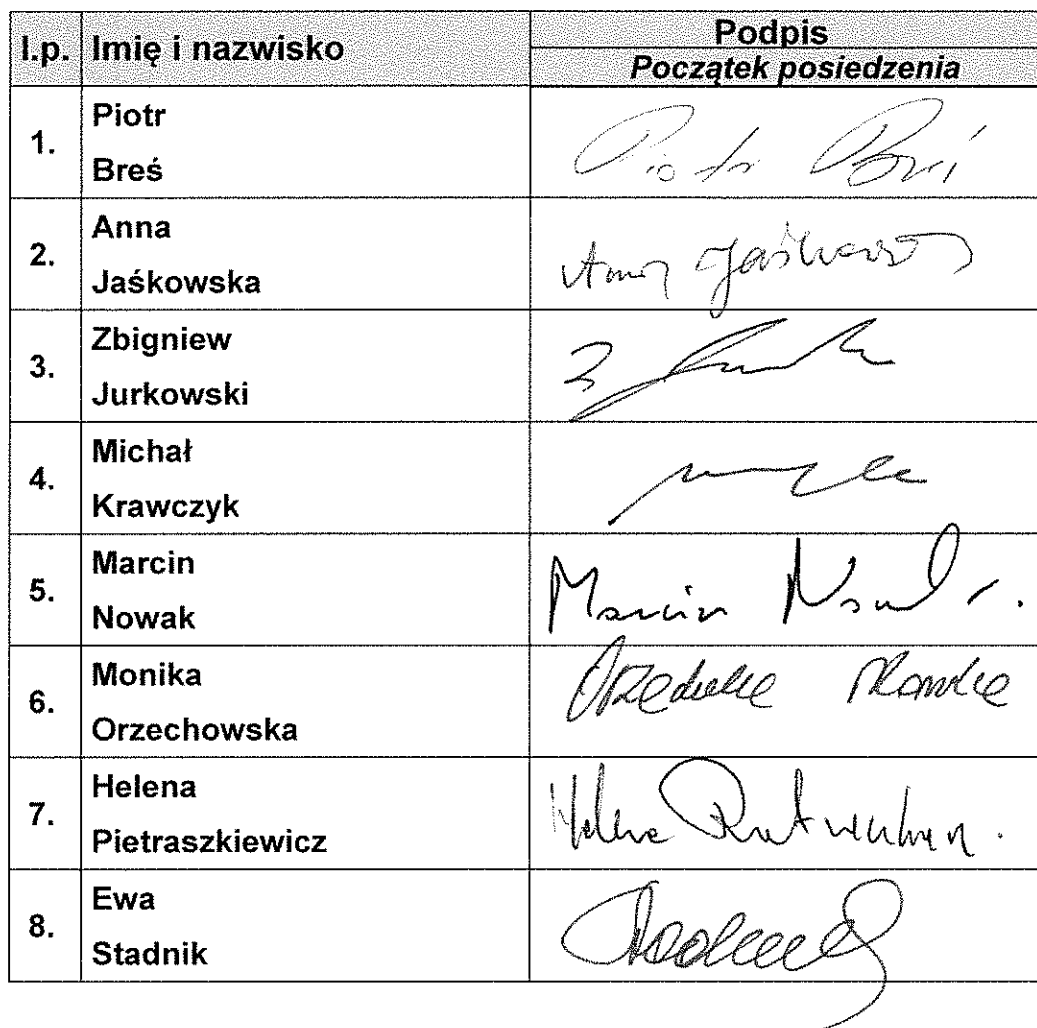 l.p. Imię i nazwisko Podpis
Początek posiedzenia
1. Piotr
Breś
Piotr Breś
2. Anna
Jaśkowska
Anna Jaśkowska
3. Zbigniew
Jurkowski
4. Michał
Krawczyk
5. Marcin
Nowak
Marcin Nowak
6. Monika
Orzechowska
7. Helena
Pietraszkiewicz
Helena
8. Ewa
Stadnik